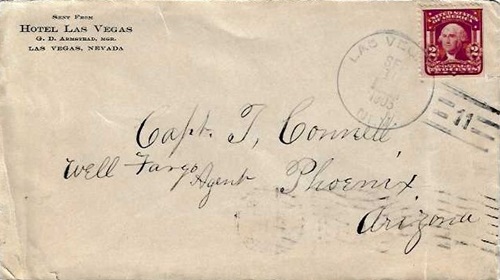 SENT FROM
HOTEL LAS VEGAS
G. D. ARMSTEAD, MGR.
LAS VEGAS, NEVADA
LAS VEG
SE
1905
UNITED STATES OF AMERICA
2 2
POSTAGE
TWO CENTS
11
Capt. T, Connell
Well Fargo
Agent Phoenix
Arizona